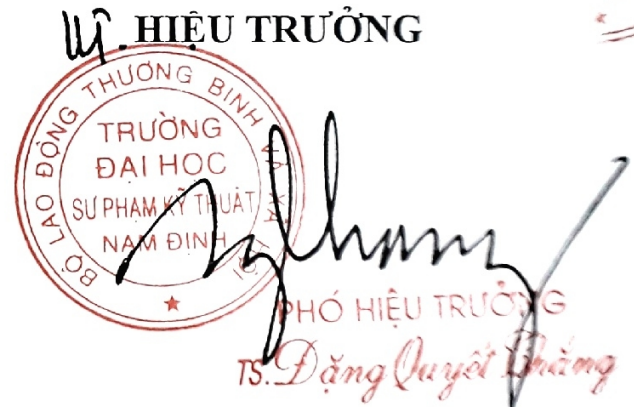 HIỆU TRƯỞNG
BỘ LAO ĐỘNG THƯƠNG BINH VÀ XÃ HỘI
TRƯỜNG
ĐẠI HỌC
SƯ PHẠM KỸ THUẬT
NAM ĐỊNH
PHÓ HIỆU TRƯỞNG
TS. Đặng Quyết Thắng